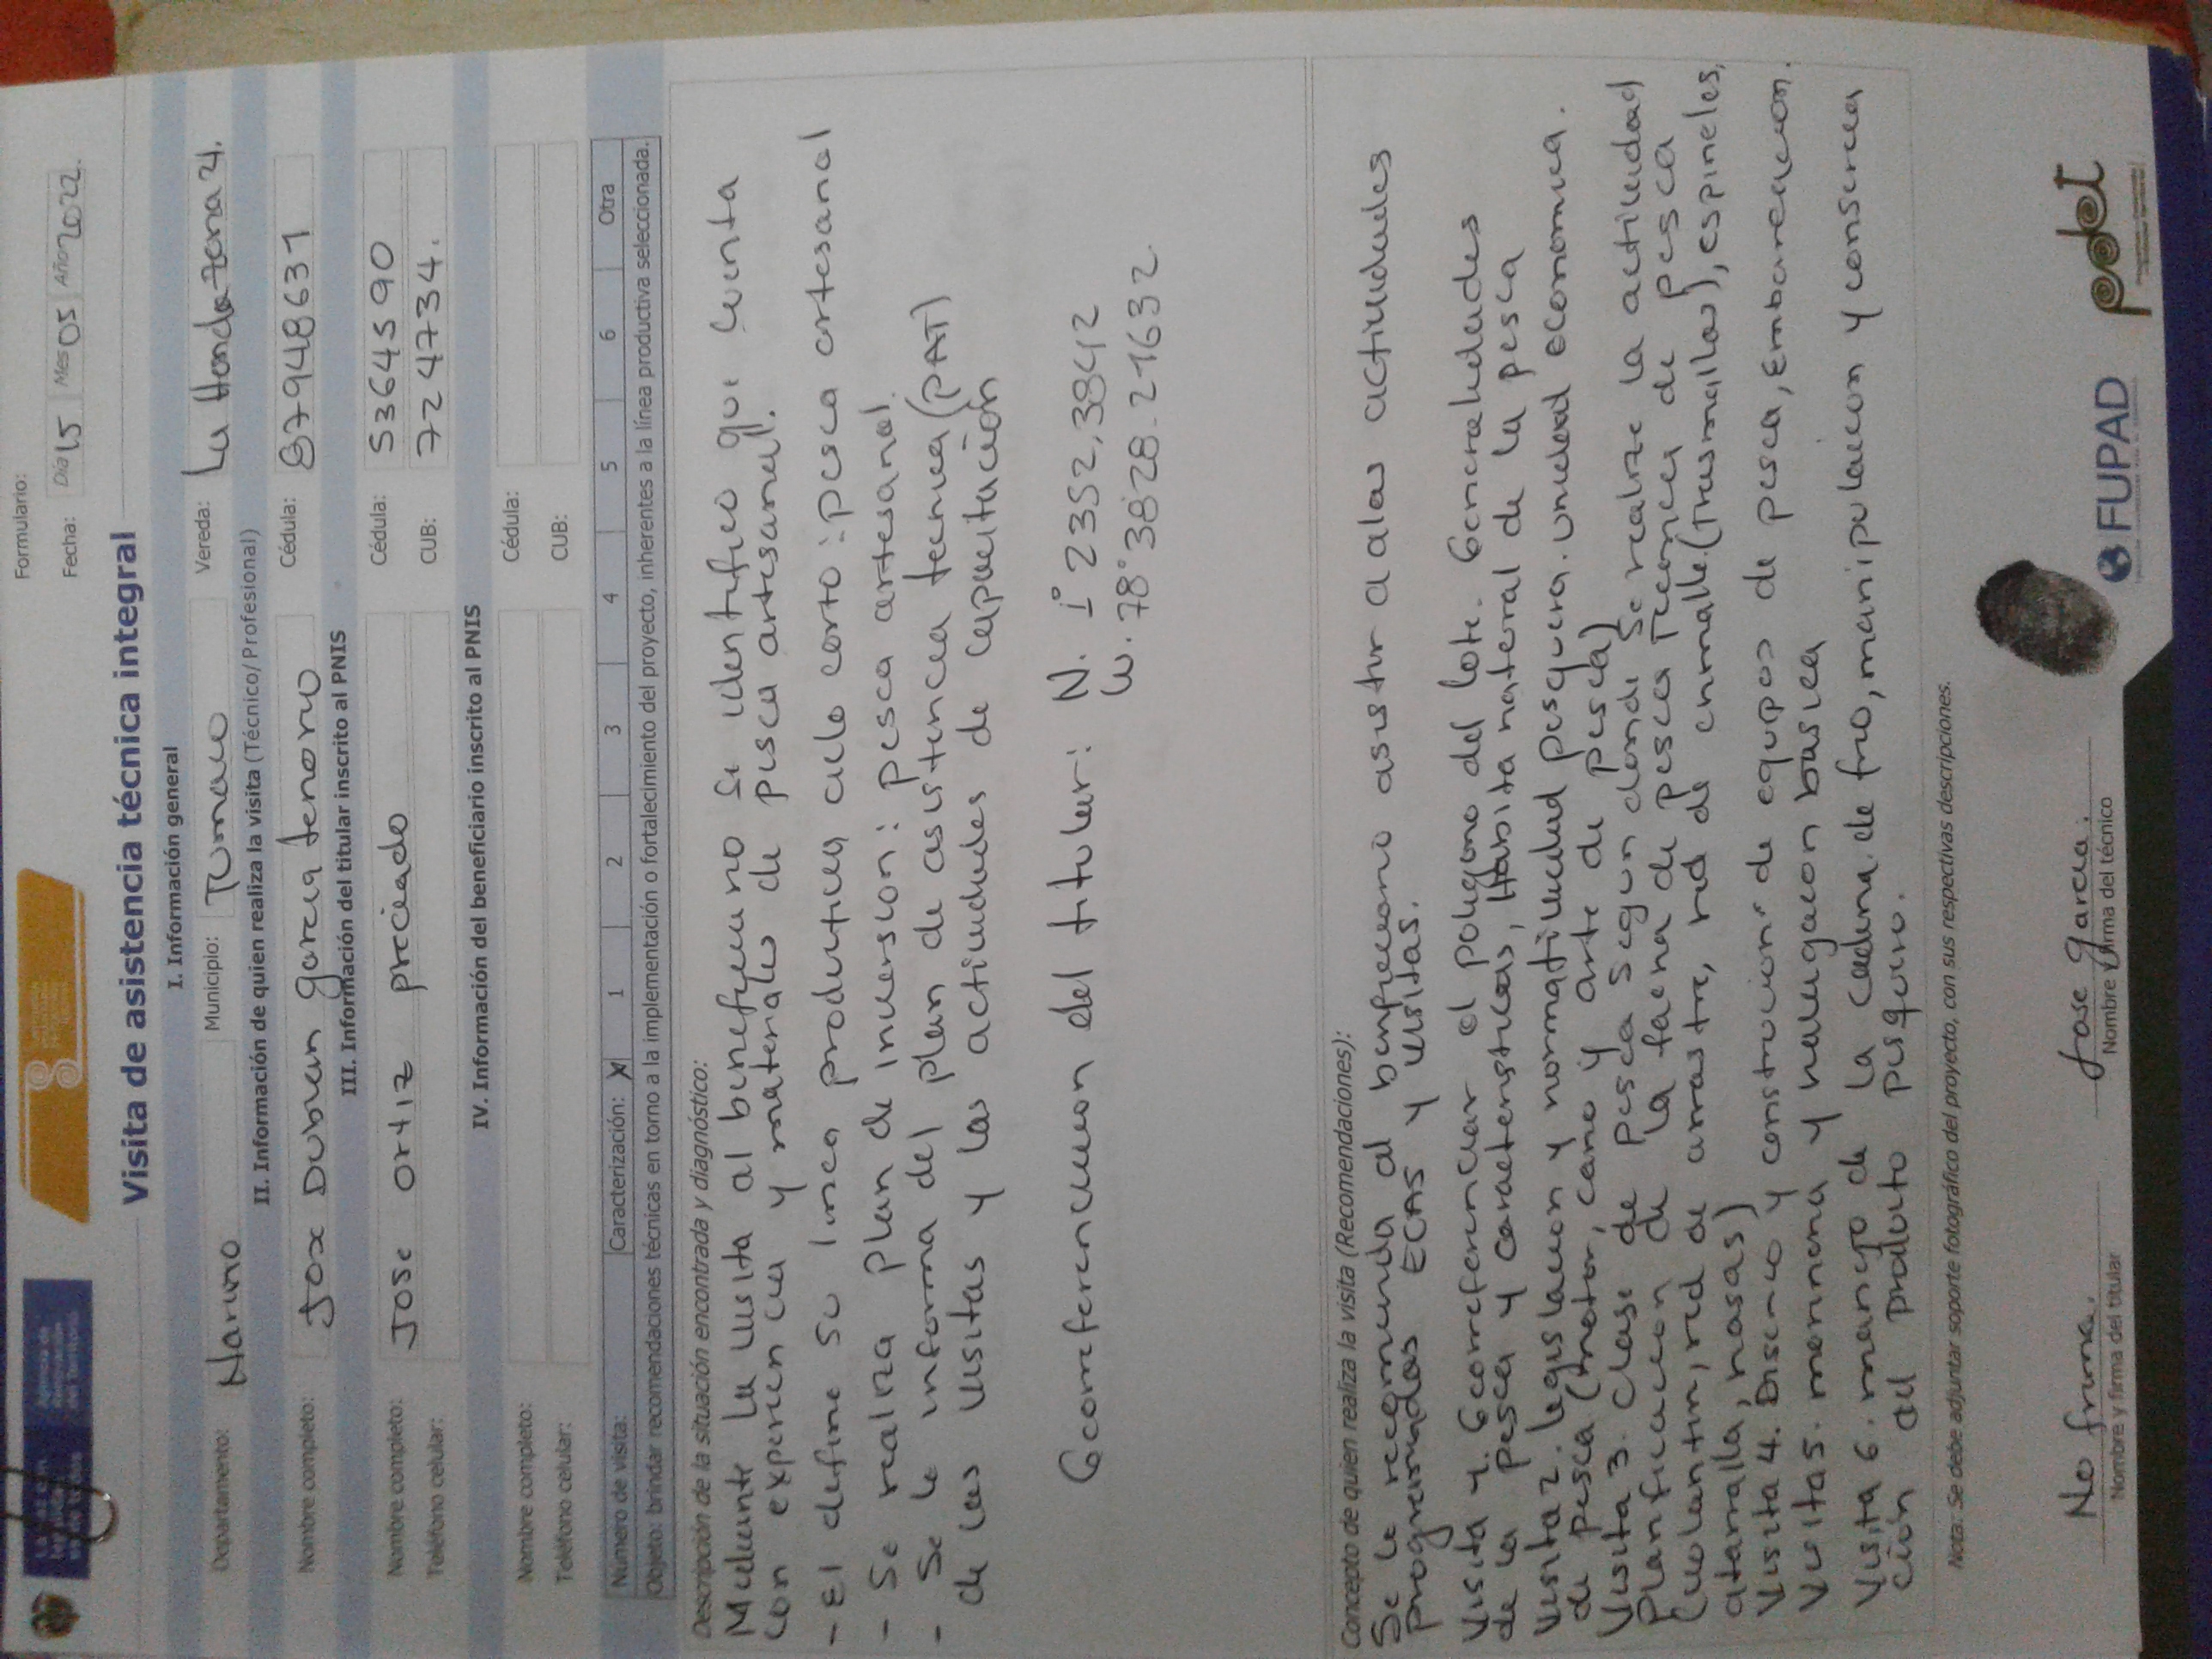 Formulario:
Fecha: Día 15 Mes 05 Año 2022.
Visita de asistencia técnica integral
I. Información general
Departamento: Narino Municipio: Tumaco Vereda: La Honda zona 24.
II. Información de quien realiza la visita (Técnico/ Profesional)
Nombre completo: Jose Duban garcia tenorio Cédula: 87948631
III. Información del titular inscrito al PNIS
Nombre completo: Jose ortiz preciado Cédula: 5364590
Teléfono celular: CUB: 7224734.
IV. Información del beneficiario inscrito al PNIS
Nombre completo: Cédula:
Teléfono celular: CUB:
Número de visita: Caracterización: X 1 2 3 4 5 6 Otra
Objeto: brindar recomendaciones técnicas en torno a la implementación o fortalecimiento del proyecto, inherentes a la línea productiva seleccionada.
Descripción de la situación encontrada y diagnóstico:
Mediante la visita al beneficiario se identifico que cuenta
con experiencia y materiales de pesca artesanal.
- El define su linea productiva ciclo corto: pesca artesanal
- Se realiza plan de inversion: pesca artesanal.
- Se le informa del plan de asistencia tecnica (PAT)
de las visitas y las actividades de capacitación
Georeferenciacion del titular: N. 1° 2352,3842
W. 78° 3828.21632
Concepto de quien realiza la visita (Recomendaciones):
Se le recomienda al beneficiario asistir a alas actividades
programadas ECAS y visitas.
Visita 1. Georeferenciar el poligono del lote. Generalidades
de la pesca y caracteristicas, Habita natural de la pesca
Visita 2. legislacion y normatividad pesquera. unidad economica.
de pesca (motor, cano y arte de pesca)
Visita 3. Clase de pesca segun donde se realize la actividad
Planificacion de la faena de pesca Tecnica de pesca
(volantin, red de arrastre, red de enmalle (trasmallos), espineles,
atarralla, nasas)
Visita 4. Diseño y construcion de equipos de pesca, embarcacion.
Visita 5. marineria y navegacion basica
Visita 6. manejo de la cadena de frio, manipulacion y conserva
ción del producto pesquero.
Nota: Se debe adjuntar soporte fotográfico del proyecto, con sus respectivas descripciones.
No firma. Jose Garcia.
Nombre y firma del titular Nombre y firma del técnico
FUPAD pdet